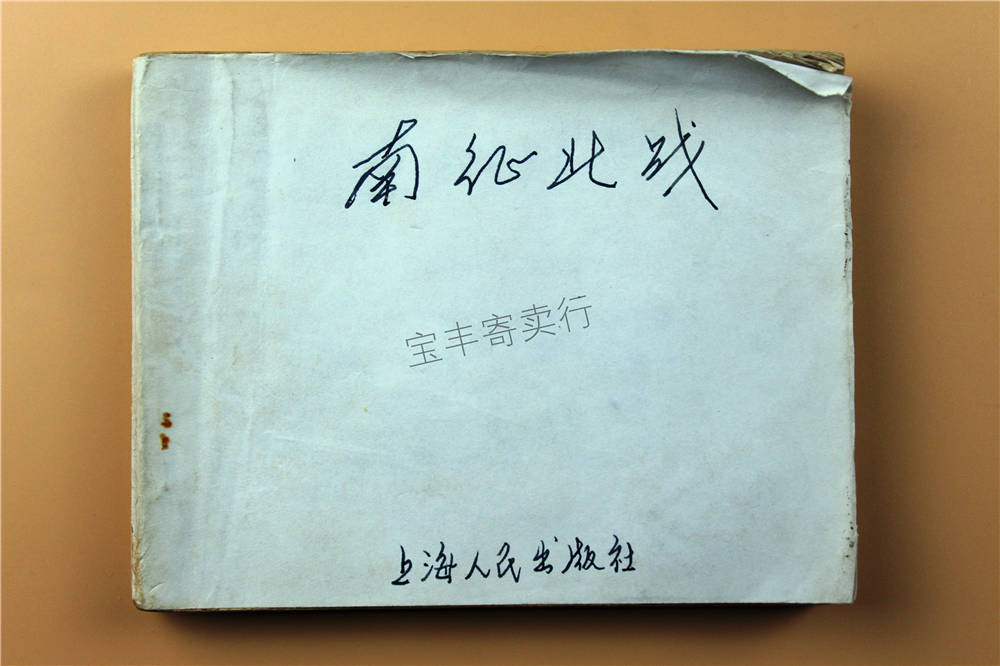 南征北战
宝丰寄卖行
上海人民出版社